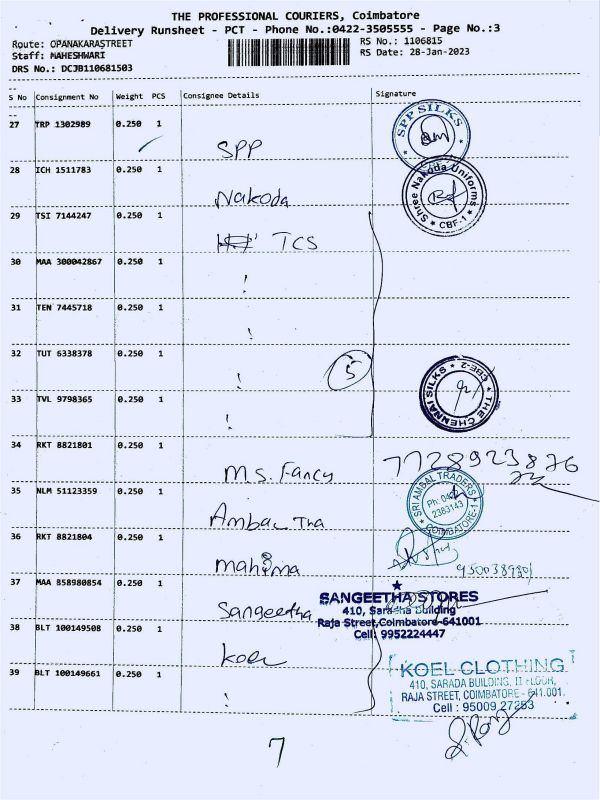 THE PROFESSIONAL COURIERS, Coimbatore
Delivery Runsheet - PCT - Phone No.:0422-3505555 - Page No.:3
Route: OPANAKARASTREET RS No.: 1106815
Staff: MAHESHWARI RS Date: 28-Jan-2023
DRS No.: DCJB110681503
S No Consignment No Weight PCS Consignee Details Signature
27 TRP 1302989 0.250 1
SPP
SPP SILKS
28 ICH 1511783 0.250 1
Nakoda
Shree Nakoda Uniforms
CBF-1
29 TSI 7144247 0.250 1
TCS
30 MAA 300042867 0.250 1
!
31 TEN 7445718 0.250 1
!
32 TUT 6338378 0.250 1
!
5
33 TVL 9798365 0.250 1
!
THE CHENNAI SILKS
CBE-2
34 RKT 8821801 0.250 1
M.S. Fancy
7728923876
35 NLM 51123359 0.250 1
SRI AMBAL TRADERS
2383143
COIMBATORE-1
36 RKT 8821804 0.250 1
mahima
37 MAA 858980854 0.250 1
Sangeetha
SANGEETHA STORES
410, Saradha Building
Raja Street,Coimbatore-641001
Cell: 9952224447
38 BLT 100149508 0.250 1
Koel
39 BLT 100149661 0.250 1
!
KOEL CLOTHING
410, SARADA BUILDING, II FLOOR,
RAJA STREET, COIMBATORE - 641 001.
Cell : 95009 27283
7